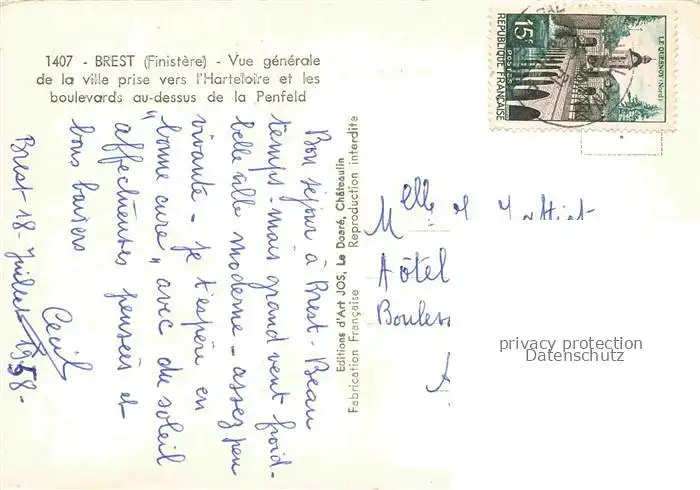 1407 - BREST (Finistère) - Vue générale
de la ville prise vers l'Harteloire et les
boulevards au-dessus de la Penfeld
Bon séjour à Brest - Beau
temps - mais grand vent froid -
belle ville moderne - assez peu
vivante - Je t'espère en
"bonne cure", avec du soleil
affectueuses pensées et
bons baisers
Cecil
Brest 18 - Juillet 1958 -
Editions d'Art JOS, Le Doaré, Châteaulin
Fabrication Française Reproduction interdite
15F
POSTES
REPUBLIQUE FRANÇAISE
LE QUESNOY (Nord)
Melle
Hôtel
privacy protection
Datenschutz